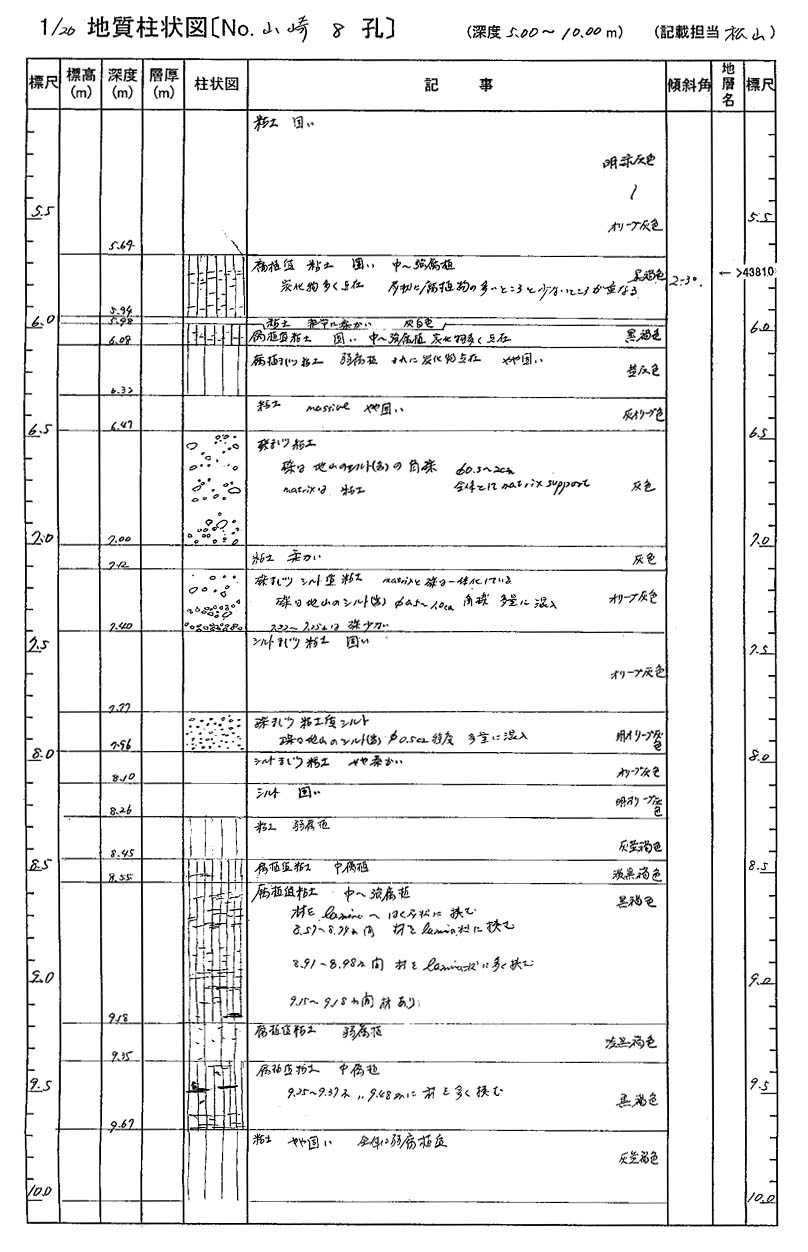 1/26 地質柱状図[No. 山崎 8 孔] (深度 5.00~10.00m) (記載担当 松山)
標尺 標高(m) 深度(m) 層厚(m) 柱状図 記事 傾斜角 地層名 標尺
粘土 固い
明 灰色
~
5.5 オリーブ灰色 5.5
5.69
腐植質 粘土 固い 中~強腐植 黒褐色 2-3° ← >43810
炭化物多く点在 腐植物の多いところと少ないところが重なる
5.94
6.0 5.98 粘土 非常に柔かい 灰白色 6.0
6.08 腐植質粘土 固い 中~強腐植 炭化物多く点在 黒褐色
腐植まじり粘土 弱腐植 まれに炭化物点在 やや固い 灰色
6.32
粘土 massive やや固い 灰オリーブ色
6.5 6.47 6.5
礫まじり粘土
礫は地山のシルト(岩)の角礫 φ0.5~2cm
matrixは 粘土 全体として matrix support 灰色
7.0 7.00 7.0
粘土 柔かい 灰色
7.12
礫まじり シルト質粘土 matrixと礫は一体化している
礫は地山のシルト(岩) φ0.5~1.0cm 角礫 多量に混入 オリーブ灰色
7.40 7.22~7.25mは 礫少ない
7.5 シルトまじり粘土 固い 7.5
オリーブ灰色
7.77
礫まじり 粘土質シルト
礫は地山のシルト(岩) φ0.5cm程度 多量に混入 明オリーブ灰色
8.0 7.96 8.0
シルトまじり粘土 やや柔かい オリーブ灰色
8.10
シルト 固い 明オリーブ灰色
8.26
粘土 弱腐植 灰黄褐色
8.45
8.5 腐植質粘土 中腐植 淡黒褐色 8.5
8.55
腐植質粘土 中~強腐植 黒褐色
材を lamina~はく片状に挟む
8.57~8.79m間 材をlamina状に挟む
8.91~8.98m間 材をlamina状に多く挟む
9.0 9.0
9.15~9.18m間 材あり
9.18
腐植質粘土 弱腐植 淡黒褐色
9.35
腐植質粘土 中腐植
9.5 9.35~9.37m, 9.48mに材を多く挟む 黒褐色 9.5
9.67
粘土 やや固い 全体に弱腐植質 灰黄褐色
10.0 10.0